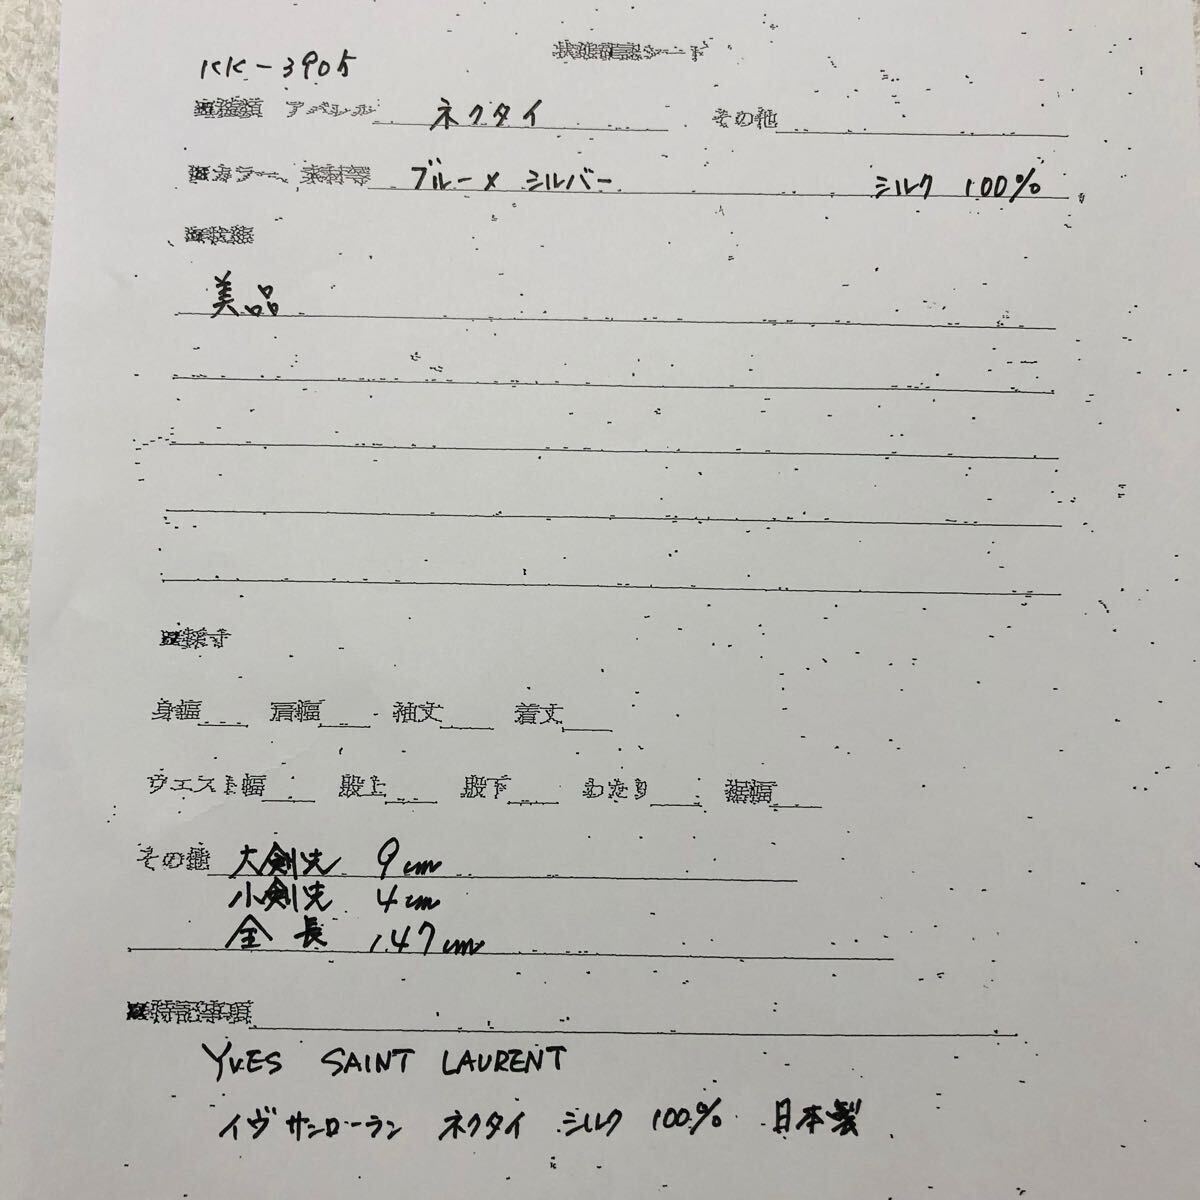 状態確認シート
KK-3905
■種類 アパレル ネクタイ その他
■カラー、素材等 ブルー×シルバー シルク 100%
■状態
美品
■採寸
身幅 肩幅 袖丈 着丈
ウエスト幅 股上 股下 わたり 裾幅
その他 大剣先 9cm
小剣先 4cm
全長 147cm
■特記事項
YVES SAINT LAURENT
イヴサンローラン ネクタイ シルク 100% 日本製